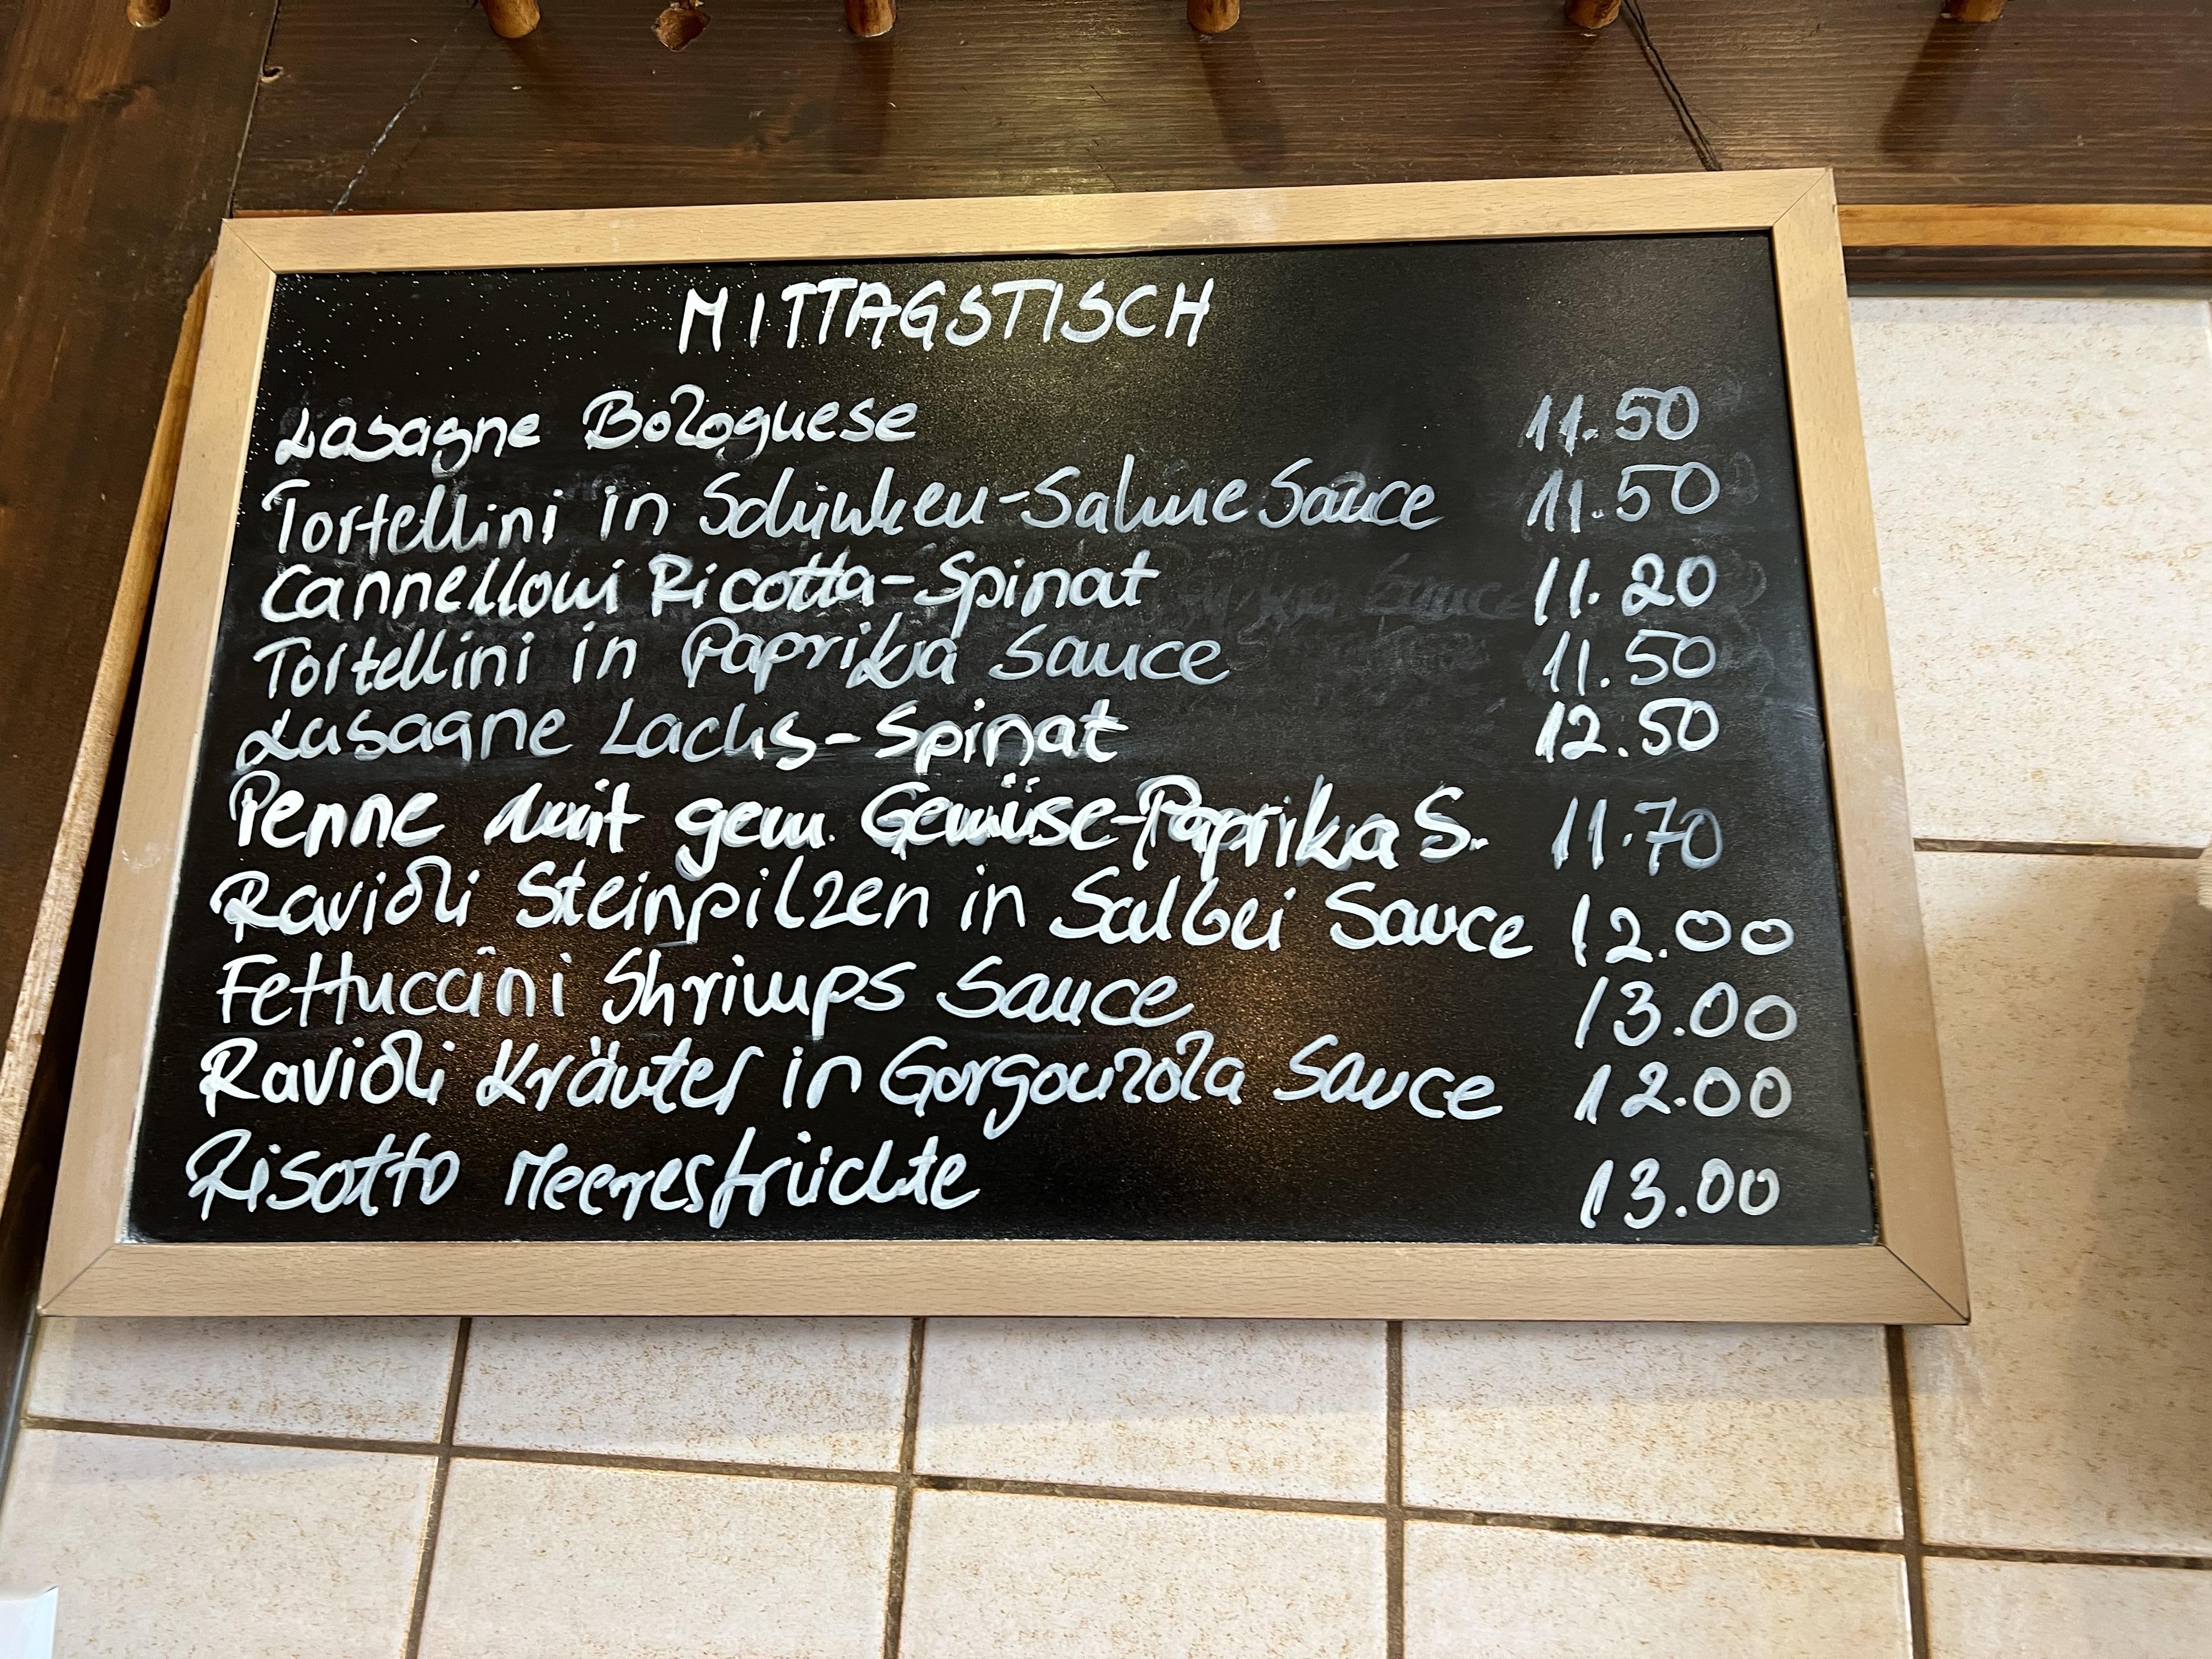 MITTAGSTISCH
Lasagne Bolognese 11.50
Tortellini in Schinken-Sahne Sauce 11.50
Cannelloni Ricotta-Spinat 11.20
Tortellini in Paprika Sauce 11.50
Lasagne Lachs-Spinat 12.50
Penne mit gem. Gemüse-Paprika S. 11.70
Ravioli Steinpilzen in Salbei Sauce 12.00
Fettuccini Shrimps Sauce 13.00
Ravioli Kräuter in Gorgonzola Sauce 12.00
Risotto Meeresfrüchte 13.00